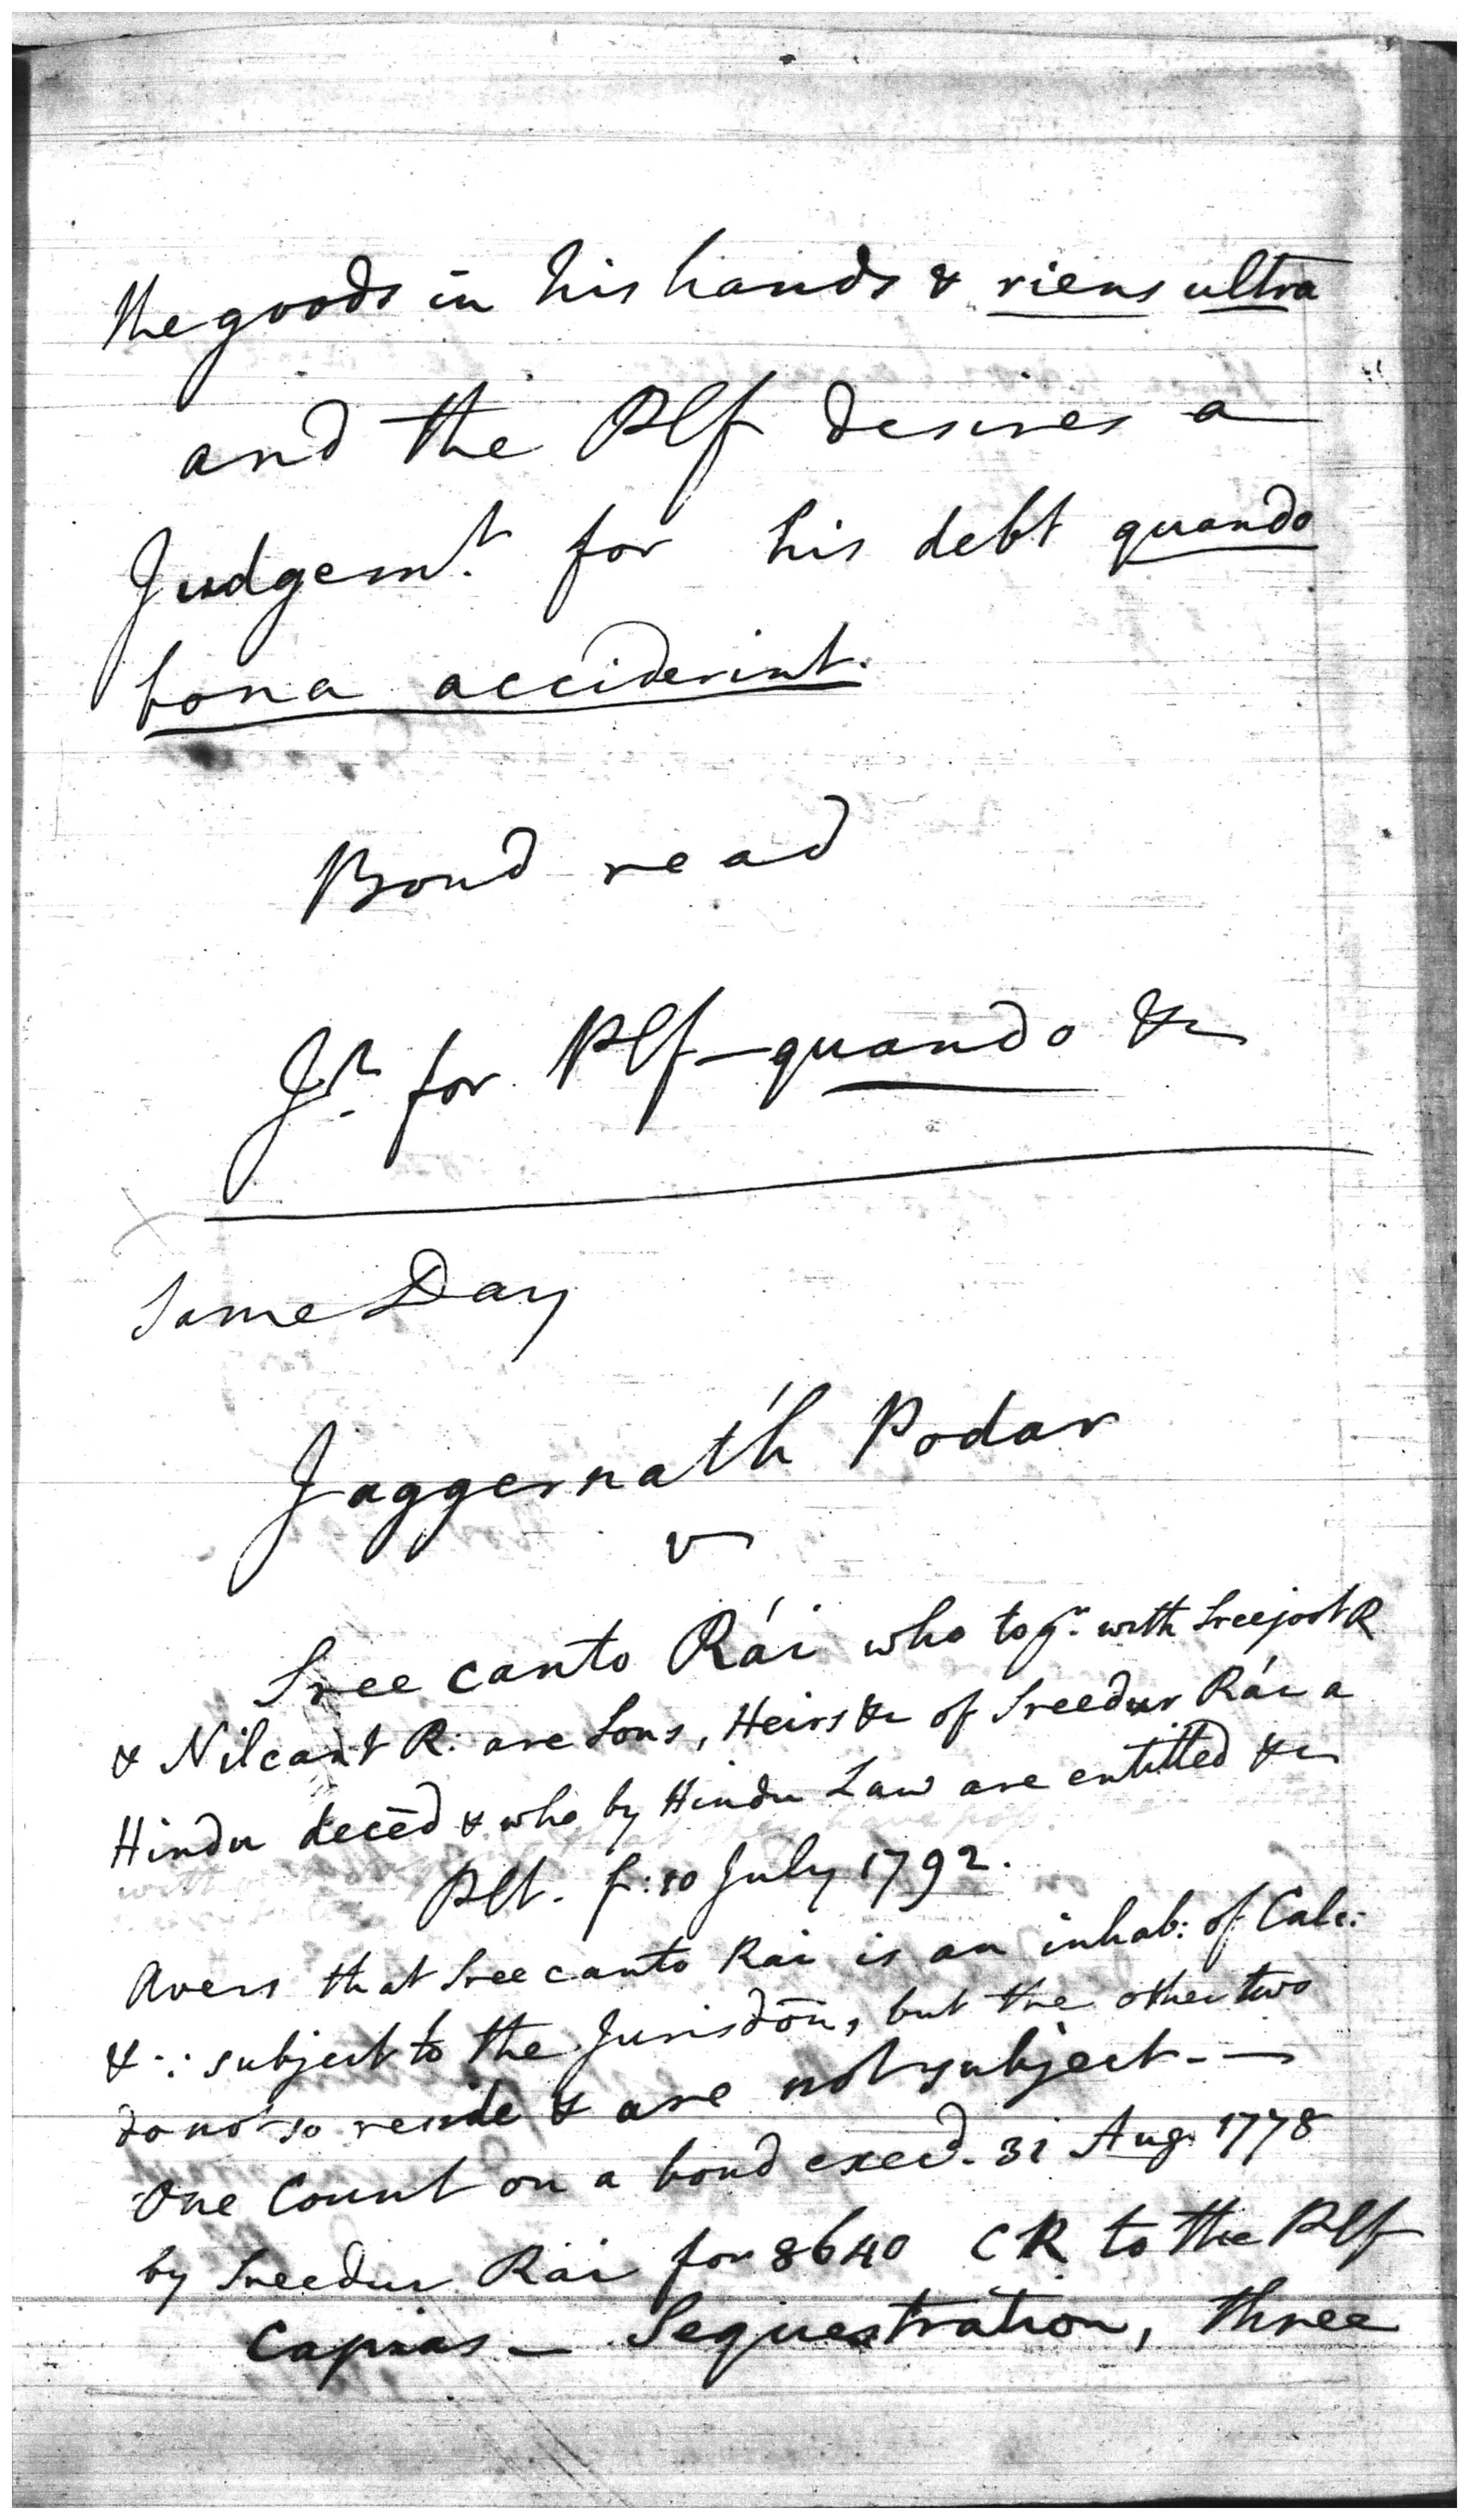 the goods in his hands & riens ultra
and the Plf desires a
Judgem.t for his debt quando
bona acciderint.
Bond read
Jt. for Plf - quando &c
Same Day
Jaggernat'h Podar
v
Sree canto Rái who tog.r with Sreejoot R
& Nilcant R: are Sons, Heirs &c of Sreedur Rái a
Hindu decēd & who by Hindu Law are entitled &c
Plt. f: 10 July 1792.
Avers that Sree canto Rai is an inhab: of Calc:
& ∴ subject to the Jurisdōn, but the other two
do not so reside & are not subject. —
One Count on a bond execd. 31 Aug. 1778
by Sreedur Rái for 8640 CR to the Plf
Capias — Sequestration, three